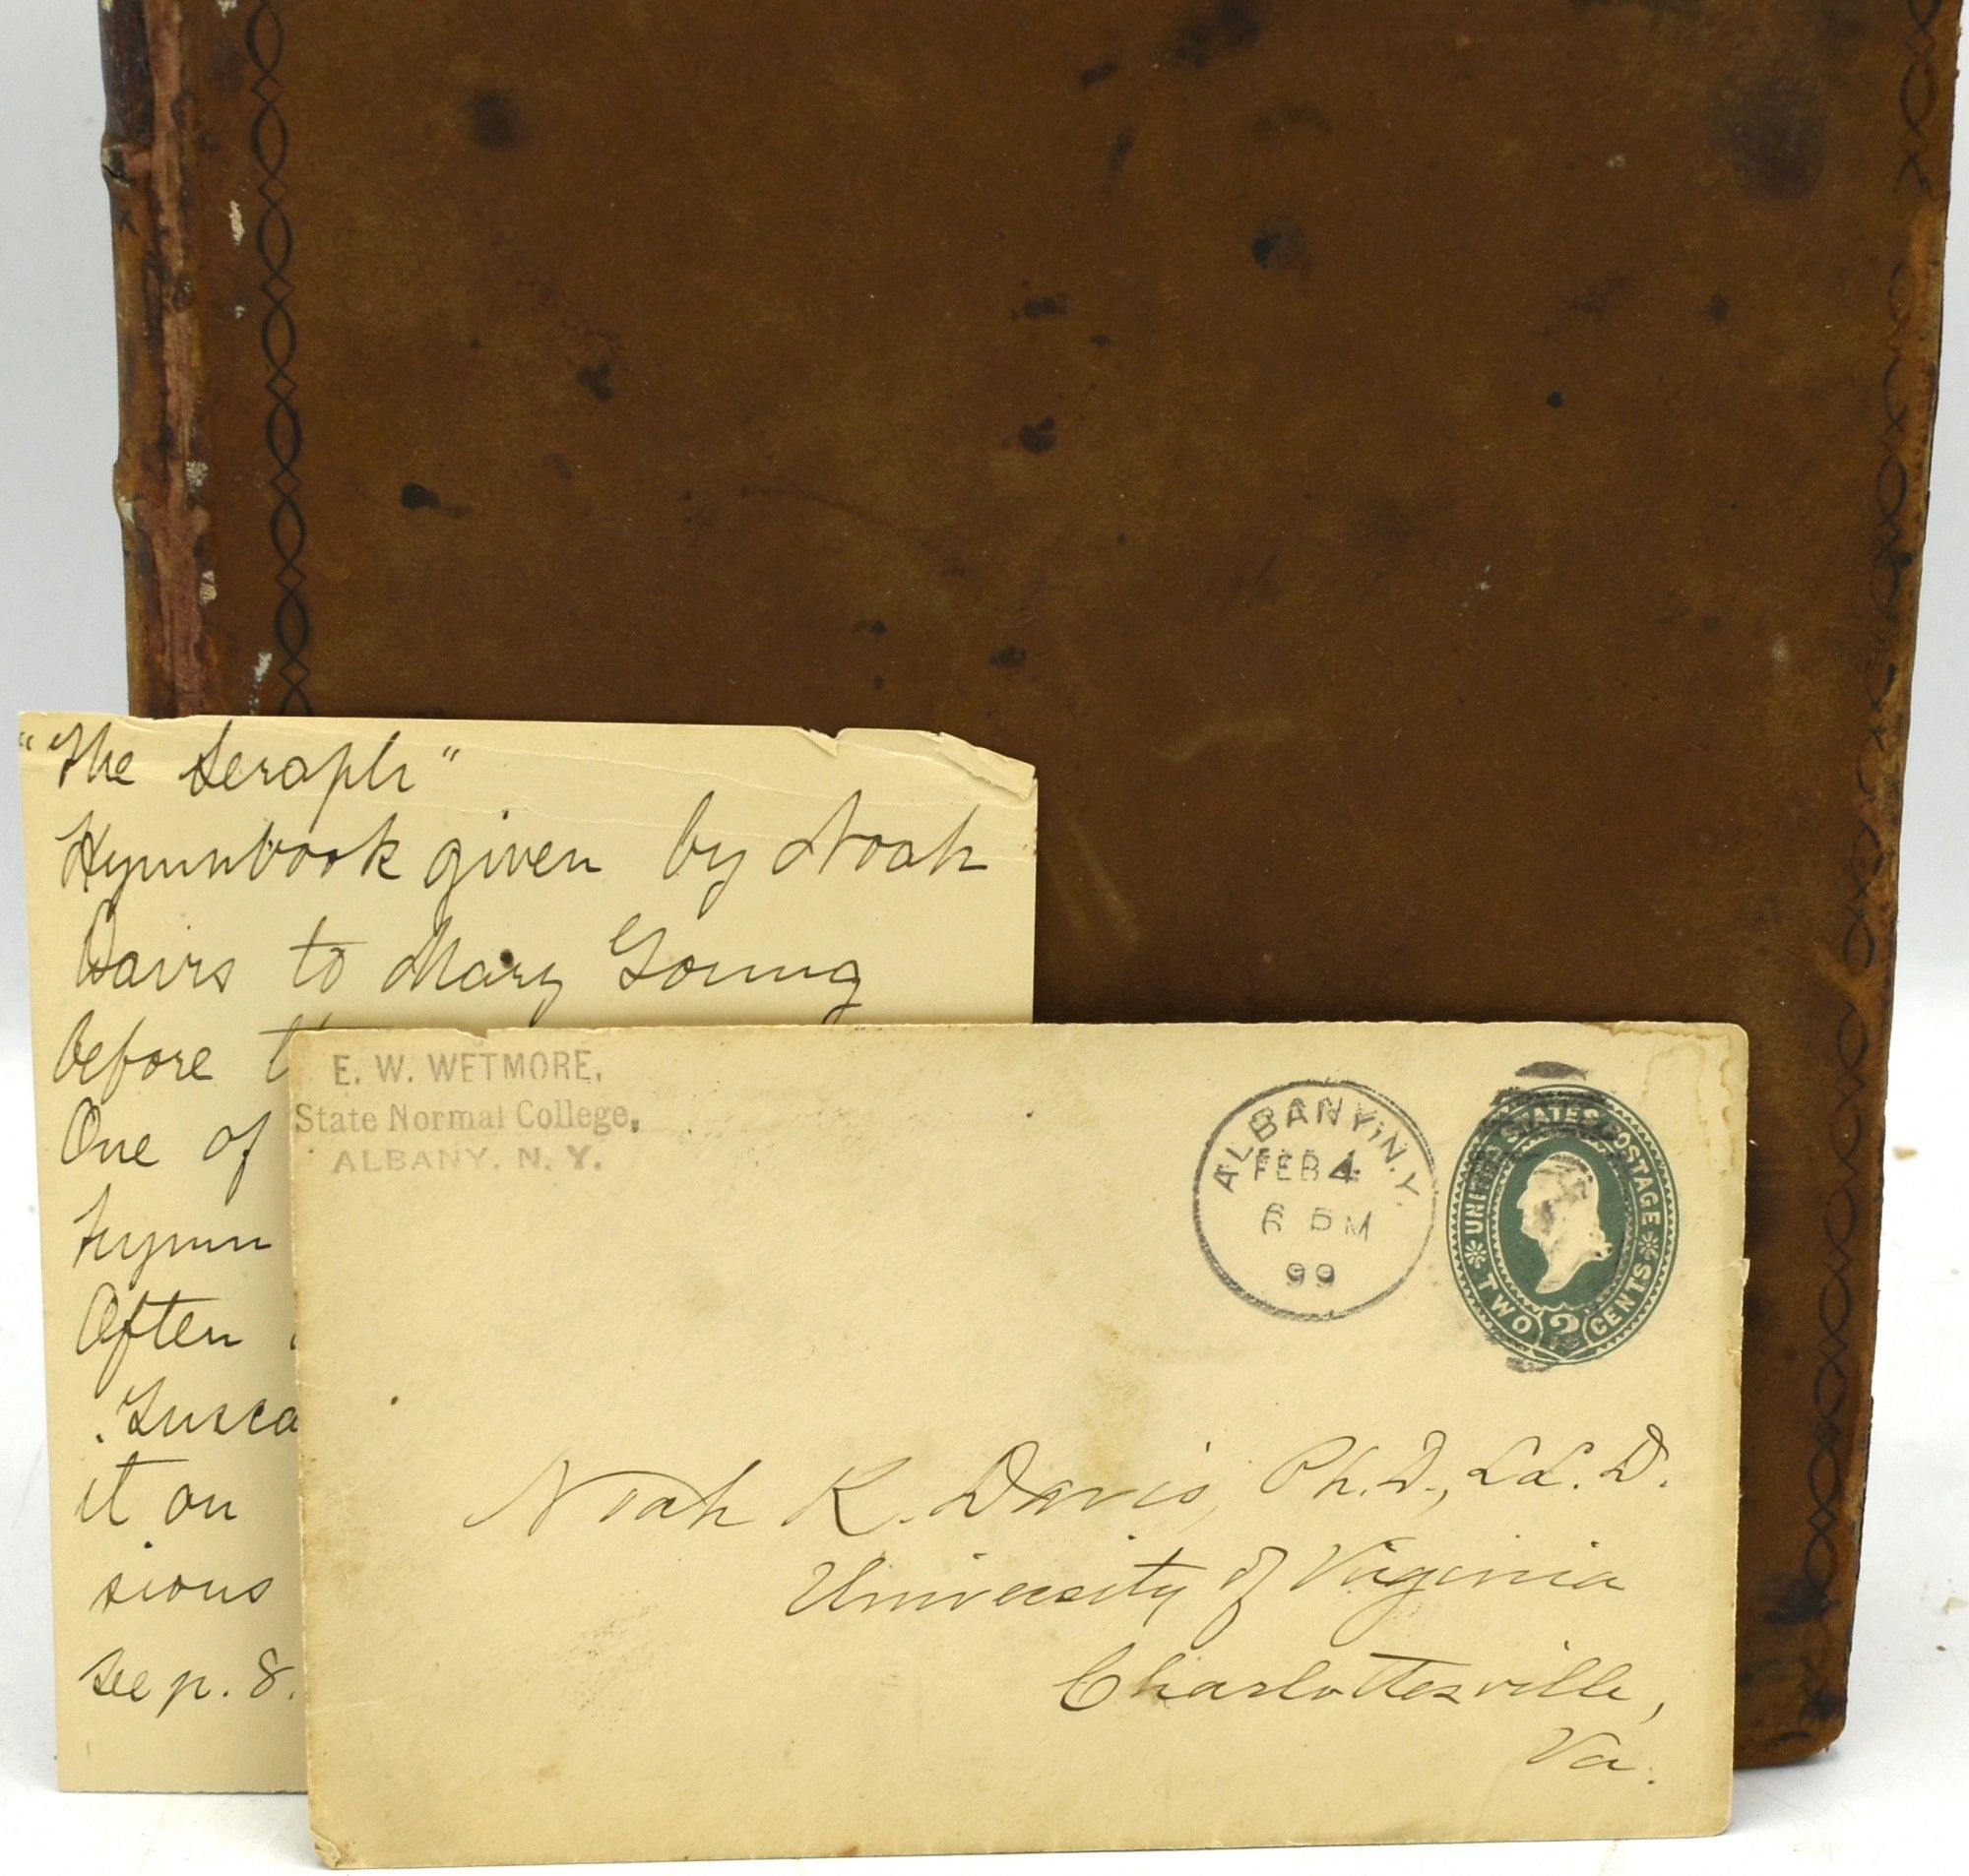 "The Seraph"
Hymnbook given by Noah
Davis to Mary Young
before
One of
hymn
Often
Tusca
it on
sions
See p. 8.
E. W. WETMORE,
State Normal College,
ALBANY, N. Y.
ALBANY, N.Y.
FEB 4
6 PM
99
UNITED STATES POSTAGE
TWO 2 CENTS
Noah K. Davis, Ph.D., LL.D.
University of Virginia
Charlottesville,
Va.